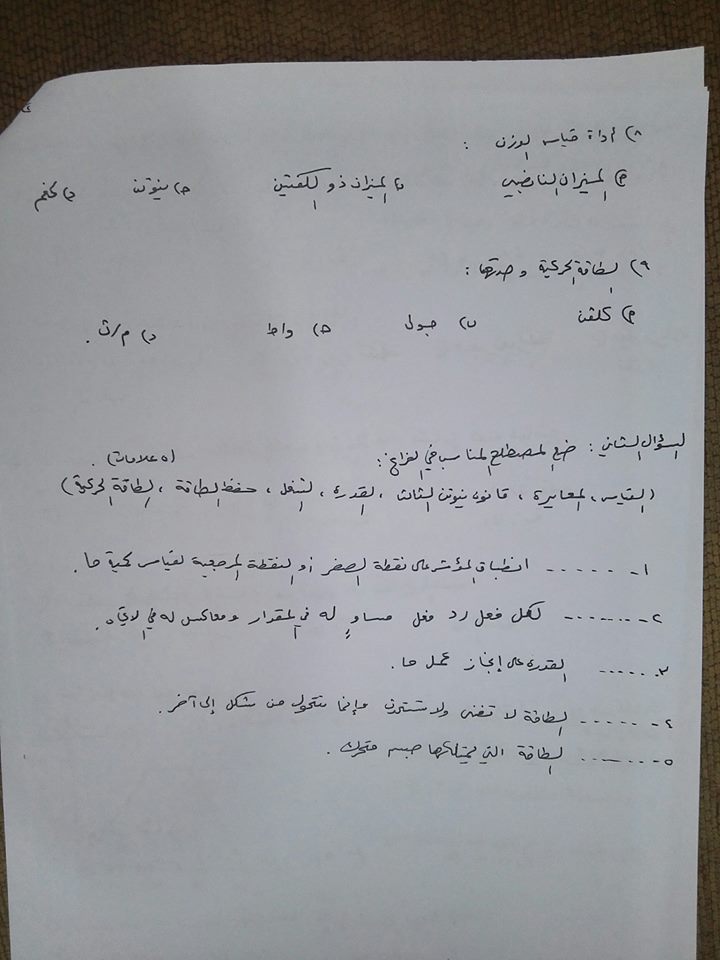 ٨) أداة قياس الوزن :
أ) الميزان النابضي ب) الميزان ذو الكفتين ج) نيوتن د) كغم
٩) الطاقة الحركية وحدتها :
أ) كلفن ب) جول ج) واط د) م/ث .
السؤال الثاني : ضع المصطلح المناسب في الفراغ : (٥ علامات) .
(القياس ، المعايرة ، قانون نيوتن الثالث ، القدرة ، الشغل ، حفظ الطاقة ، الطاقة الحركية)
١- ------ انطباق المؤشر على نقطة الصفر أو النقطة المرجعية لقياس كمية ما .
٢- ------- لكل فعل رد فعل مساوٍ له في المقدار ومعاكس له في الاتجاه .
٣- ------ القدرة على إنجاز عمل ما .
٤- ------ الطاقة لا تفنى ولا تستحدث وإنما تتحول من شكل إلى آخر .
٥- ------- الطاقة التي يمتلكها جسم متحرك .